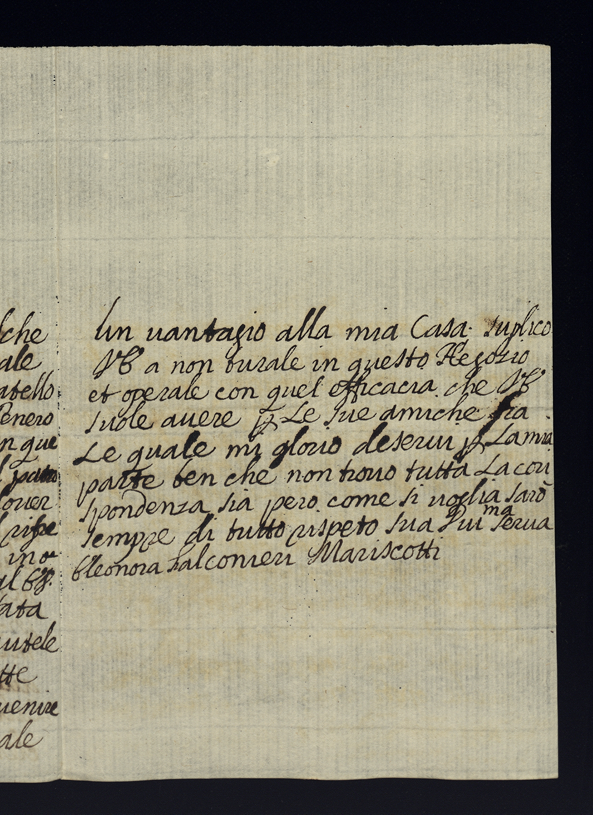 lche
ale
atello
Genero
n que
pato
over
rispe
in o
al
ata
autele
tte
uenire
ale
un vantagio alla mia Casa. suplico
VS a non turale in questo Negozio
et operale con quel efficacia che VS
suole avere p Le sue amiche fra
Le quale mi glorio deservi p La mia
parte ben che non trovo tutta La cori
spondenza sia pero come si voglia sarò
sempre di tutto rispeto sua Dui.ma serva
Eleonora Falconieri Mariscotti